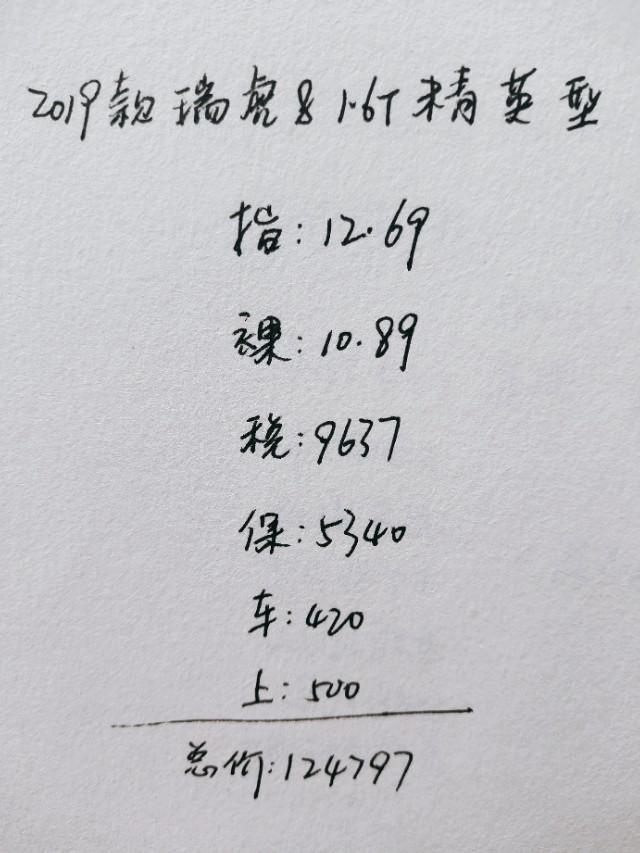 2019款瑞虎8 1.6T精英型
指:12.69
裸:10.89
税:9637
保:5340
车:420
上:500
总价:124797